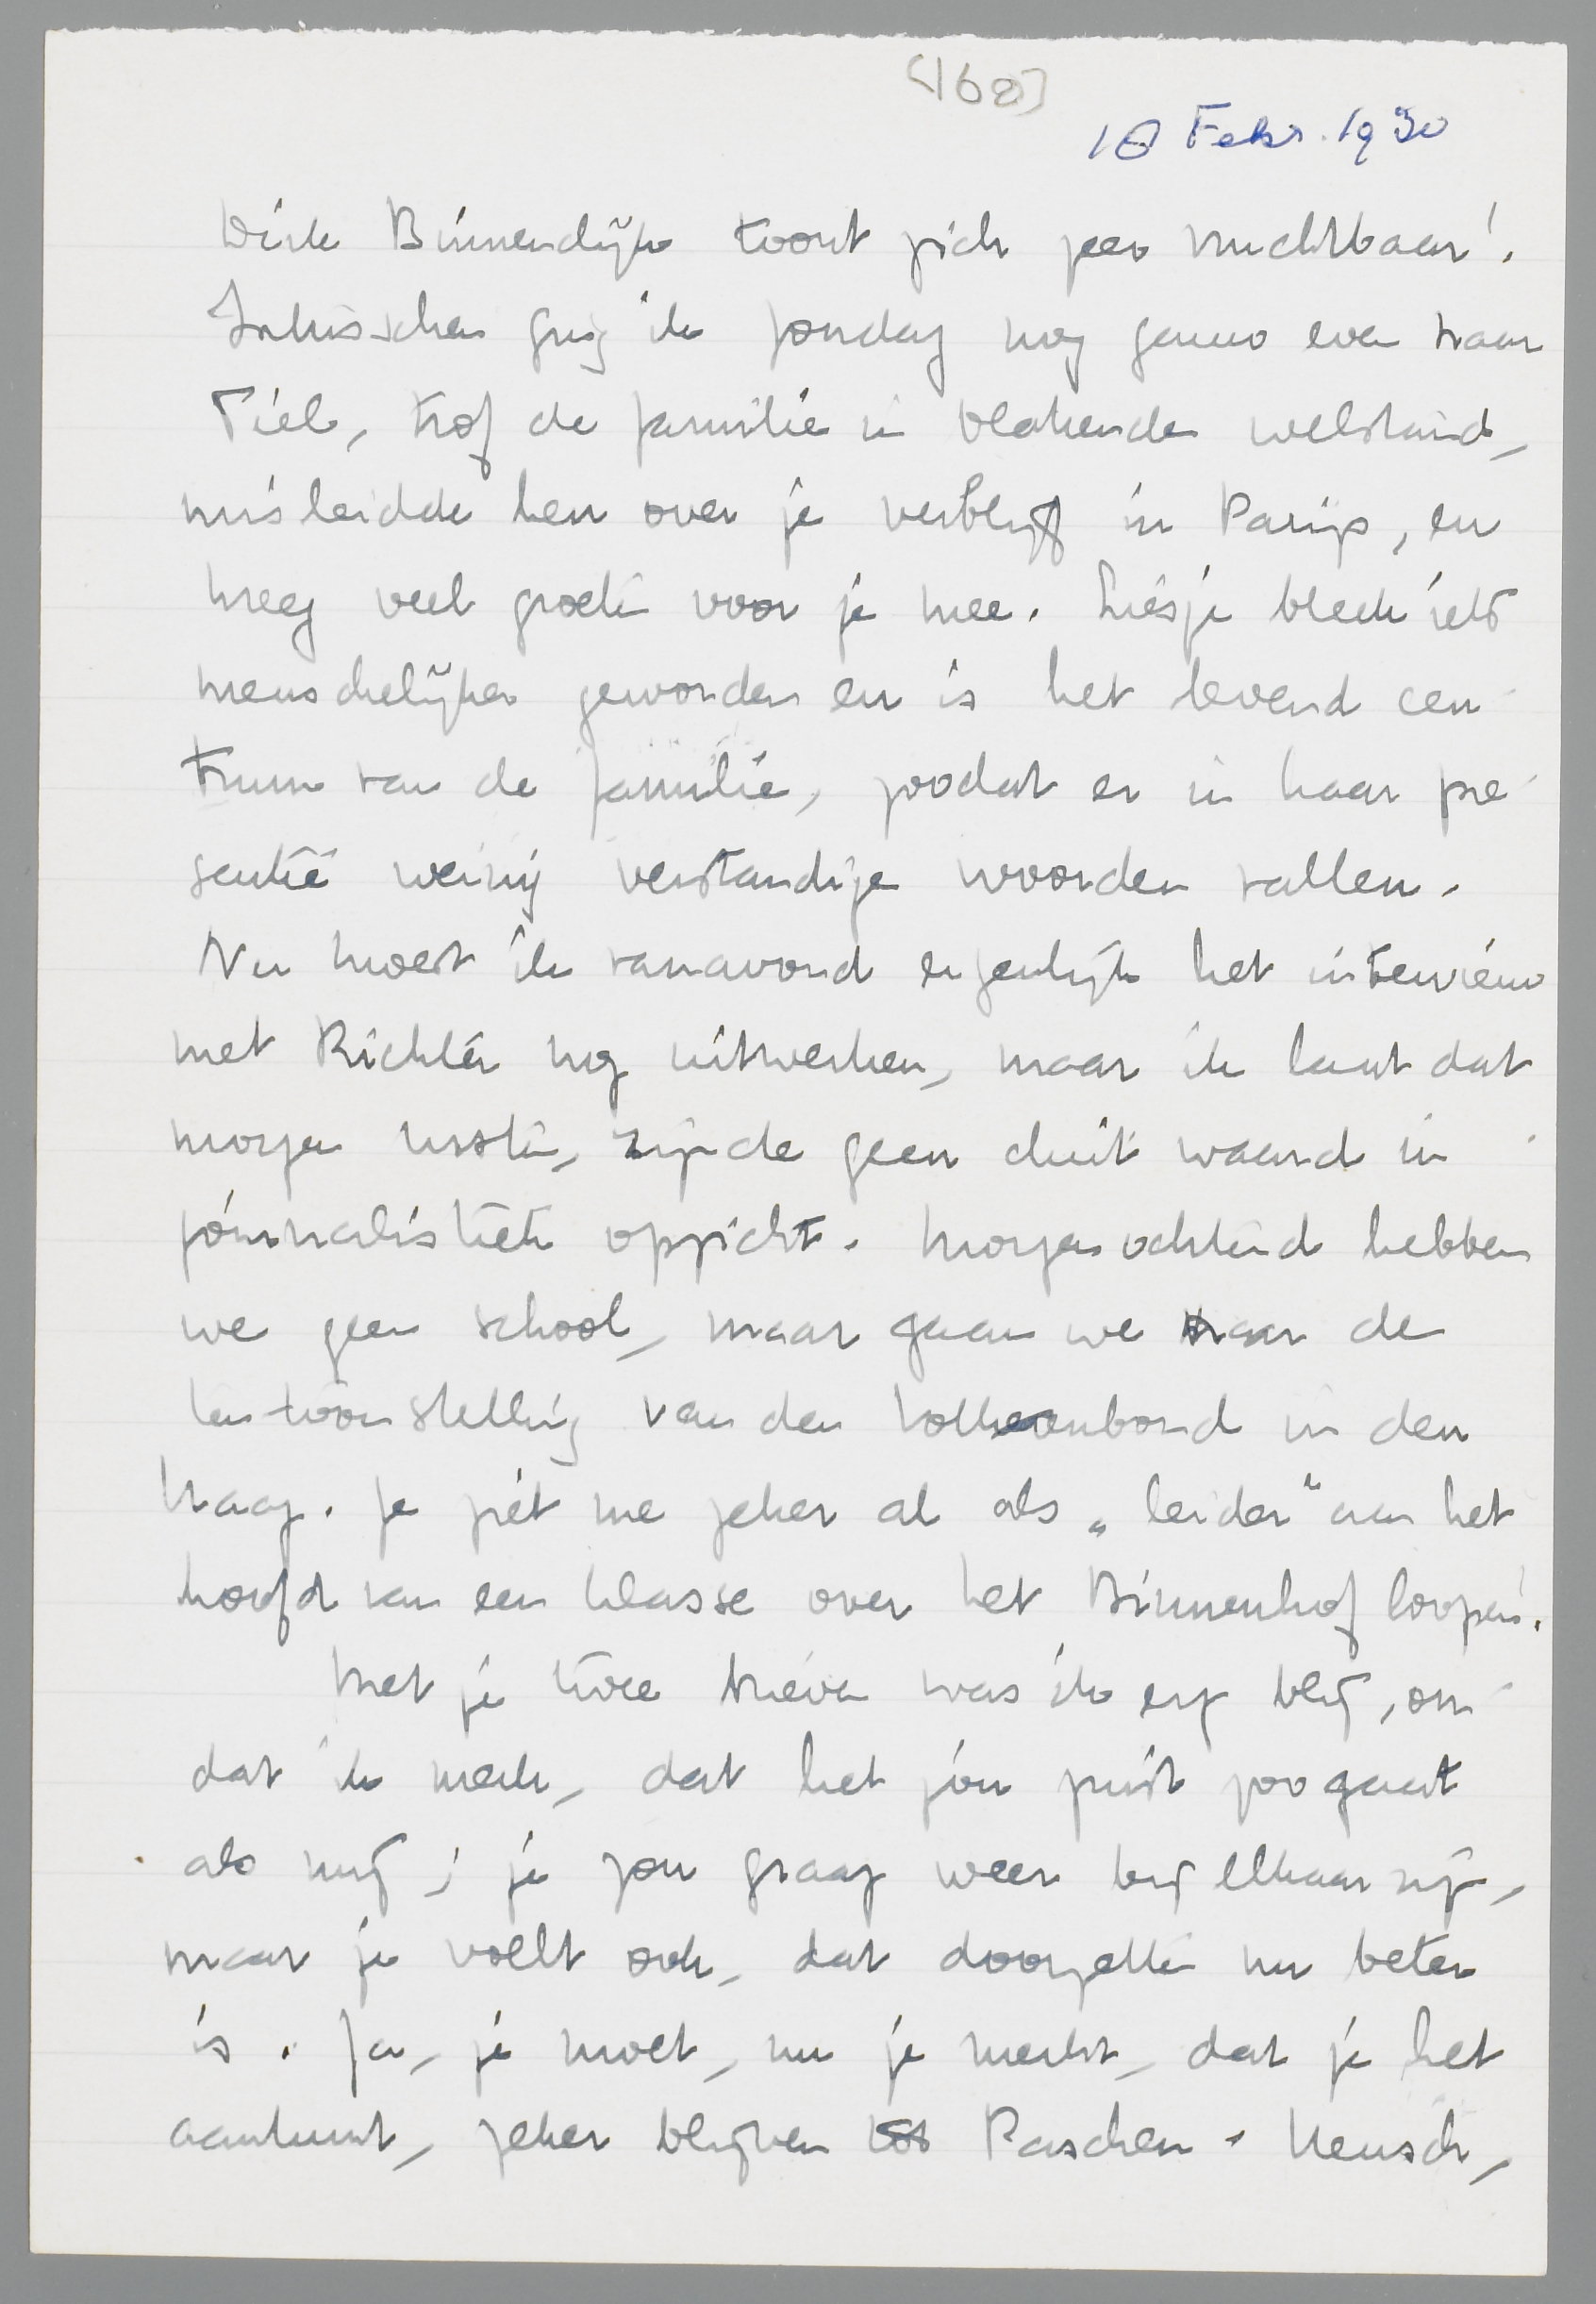 [168]
18 Febr. 1930
Dirk Binnendijk toont zich zeer vruchtbaar!
Intusschen ging ik zondag nog gauw even naar
Tiel, trof de familie in blakenden welstand,
misleidde hen over je verblijf in Parijs, en
kreeg veel groeten voor je mee. Liesje bleek iets
menschelijker geworden en is het levend cen-
trum van de familie, zoodat er in haar pre-
sentie weinig verstandige woorden vallen.
Nu moest ik vanavond eigenlijk het interview
met Richter nog uitwerken, maar ik laat dat
morgen rusten, zijnde geen duit waard in
journalistiek opzicht. Morgenochtend hebben
we geen school, maar gaan we naar de
tentoonstelling van den Volkenbond in den
Haag. Je ziet me zeker al als „leider" aan het
hoofd van een klasse over het Binnenhof loopen!
Met je twee brieven was ik erg blij, om-
dat ik merk, dat het jou juist zoo gaat
als mij; je zou graag weer bij elkaar zijn,
maar je voelt ook, dat doorzetten nu beter
is. Ja, je moet, nu je merkt, dat je het
aankunt, zeker blijven tot Paschen. Heusch,